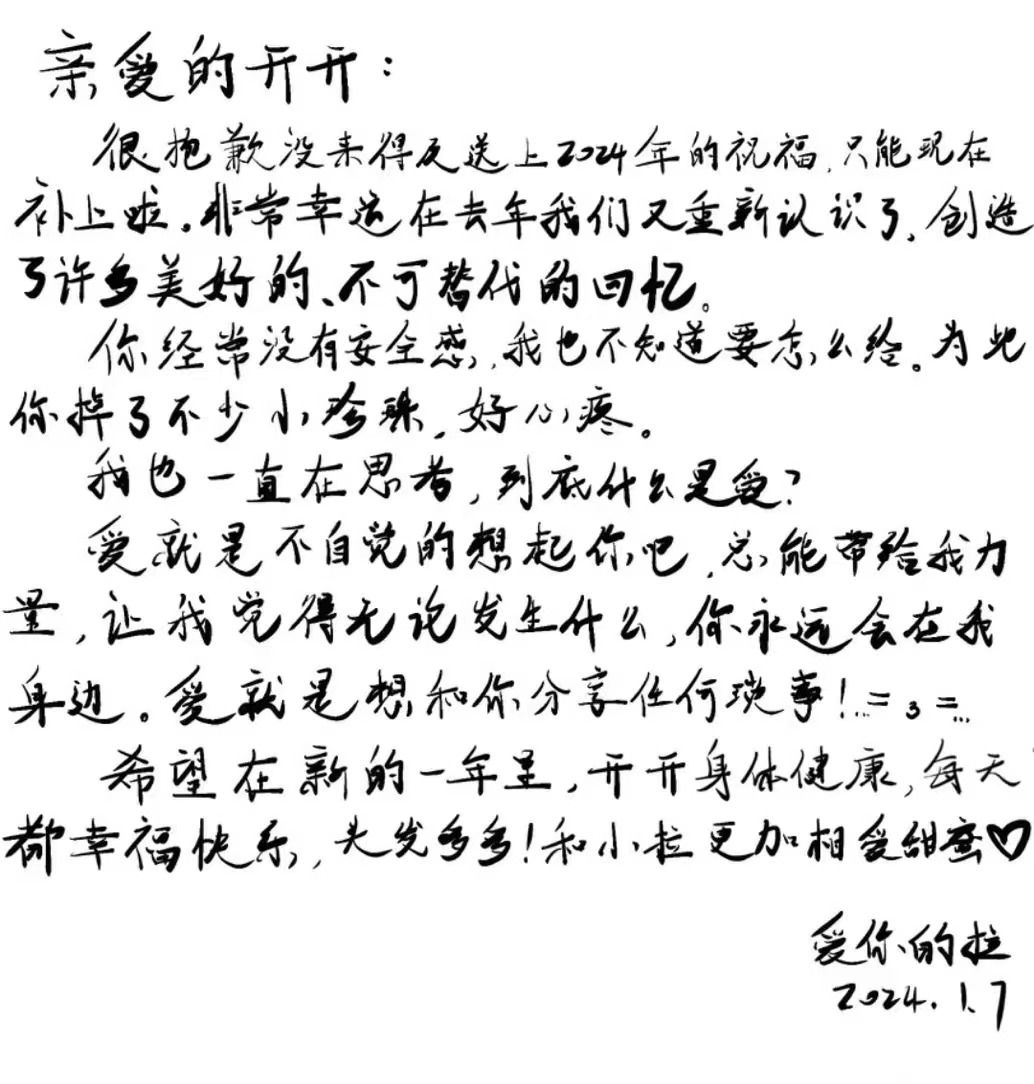 亲爱的开开：
很抱歉没来得及送上2024年的祝福，只能现在
补上啦。非常幸运在去年我们又重新认识了，创造
了许多美好的、不可替代的回忆。
你经常没有安全感，我也不知道要怎么给。为此
你掉了不少小珍珠，好心疼。
我也一直在思考，到底什么是爱？
爱就是不自觉的想起你吧，总能带给我力
量，让我觉得无论发生什么，你永远会在我
身边。爱就是想和你分享任何琐事！=3=
希望在新的一年里，开开身体健康，每天
都幸福快乐，头发多多！和小拉更加相爱甜蜜♡
爱你的拉
2024.1.7